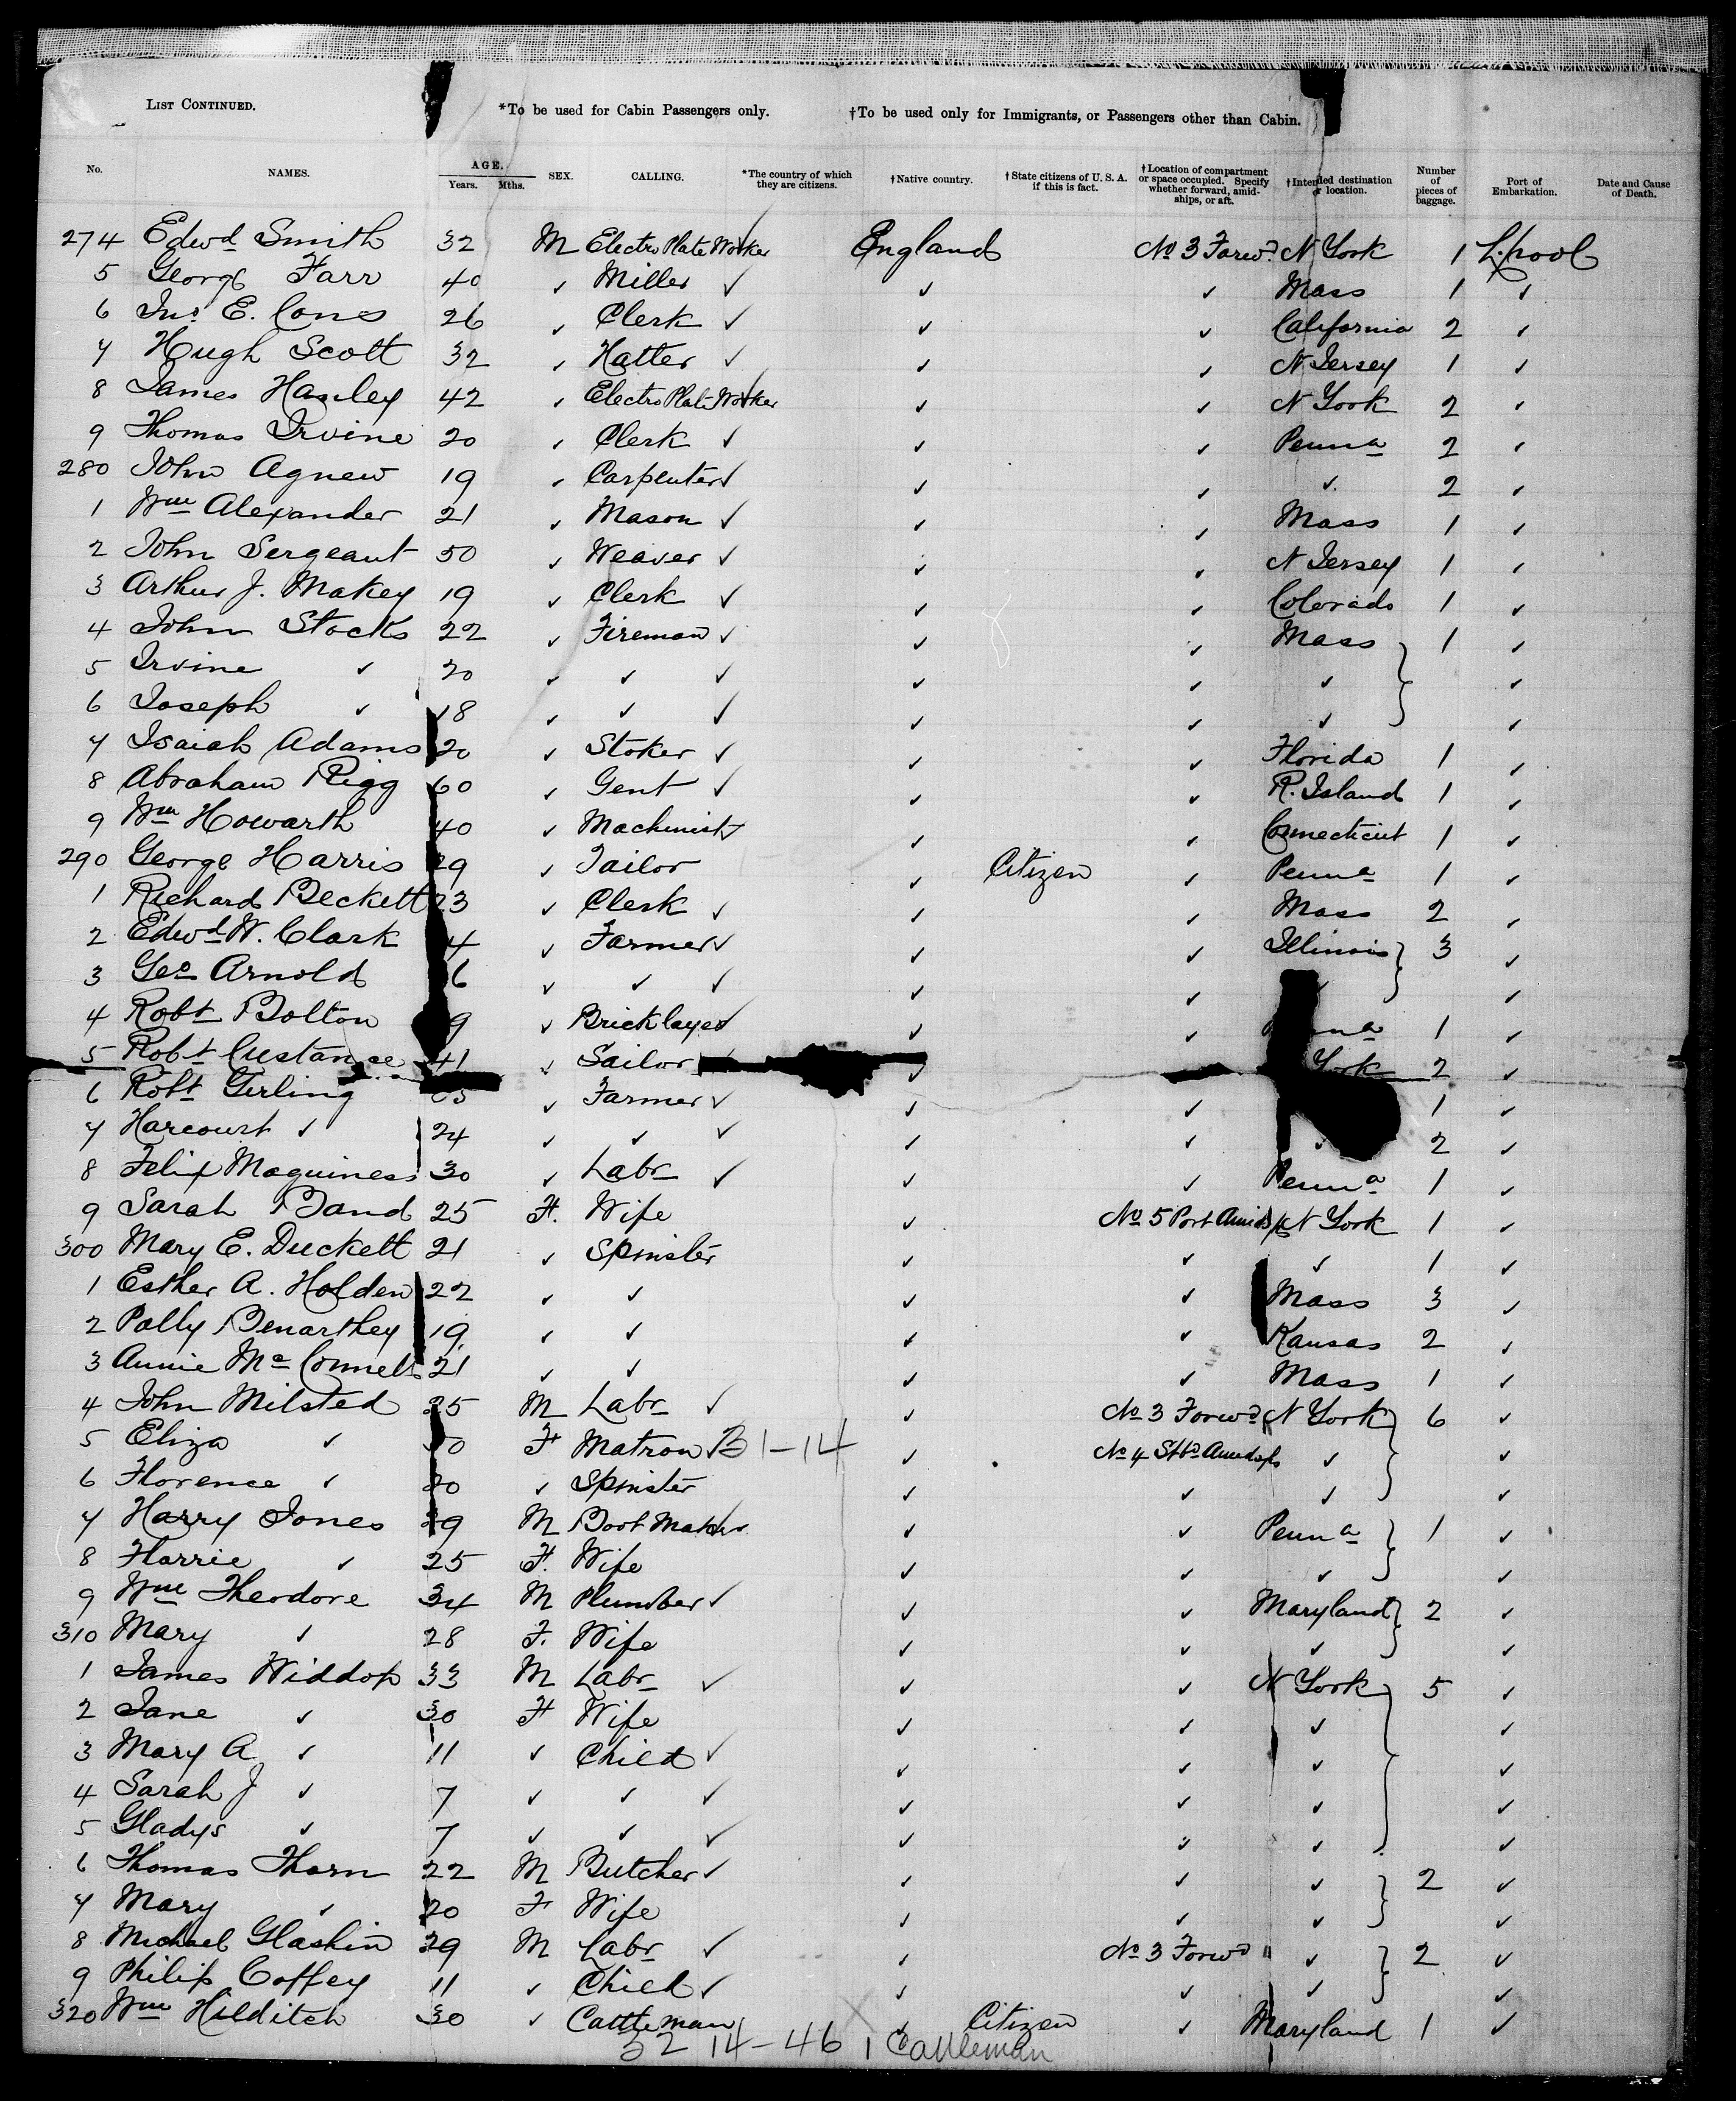 LIST CONTINUED. *To be used for Cabin Passengers only. †To be used only for Immigrants, or Passengers other than Cabin.
No. NAMES. AGE. Years. Mths. SEX. CALLING. *The country of which they are citizens. †Native country. †State citizens of U. S. A. if this is fact. †Location of compartment or space occupied. Specify whether forward, amidships, or aft. †Intended destination or location. Number of pieces of baggage. Port of Embarkation. Date and Cause of Death.
274 Edwd Smith 32 M Electro Plate Worker England No 3 Forwd N York 1 L.pool
5 George Farr 40 ✓ Miller ✓ ✓ ✓ Mass 1 ✓
6 Jno E. Cons 26 ✓ Clerk ✓ ✓ ✓ California 2 ✓
7 Hugh Scott 32 ✓ Hatter ✓ ✓ ✓ N Jersey 1 ✓
8 James Hanley 42 ✓ Electro Plate Worker ✓ ✓ N York 2 ✓
9 Thomas Irvine 20 ✓ Clerk ✓ ✓ ✓ Penna 2 ✓
280 John Agnew 19 ✓ Carpenter ✓ ✓ ✓ ✓ 2 ✓
1 Wm Alexander 21 ✓ Mason ✓ ✓ ✓ Mass 1 ✓
2 John Sergeant 50 ✓ Weaver ✓ ✓ ✓ N Jersey 1 ✓
3 Arthur J. Makey 19 ✓ Clerk ✓ ✓ ✓ Colorado 1 ✓
4 John Stocks 22 ✓ Fireman ✓ ✓ ✓ Mass 1 ✓
5 Irvine ✓ 20 ✓ ✓ ✓ ✓ ✓ ✓ ✓
6 Joseph ✓ 18 ✓ ✓ ✓ ✓ ✓ ✓ ✓
7 Isaiah Adams 20 ✓ Stoker ✓ ✓ ✓ Florida 1 ✓
8 Abraham Rigg 60 ✓ Gent ✓ ✓ ✓ R. Island 1 ✓
9 Wm Howarth 40 ✓ Machinist ✓ ✓ ✓ Connecticut 1 ✓
290 George Harris 29 ✓ Tailor ✓ Citizen ✓ Penna 1 ✓
1 Richard Beckett 23 ✓ Clerk ✓ ✓ ✓ Mass 2 ✓
2 Edwd W. Clark 4 ✓ Farmer ✓ ✓ ✓ Illinois 3 ✓
3 Geo Arnold 6 ✓ ✓ ✓ ✓ ✓ ✓ ✓
4 Robt Bolton 9 ✓ Bricklayer ✓ ✓ ✓ 1 ✓
5 Robt Custance 41 ✓ Sailor ✓ York 2 ✓
6 Robt Girling ✓ Farmer ✓ ✓ ✓ 1 ✓
7 Harcourt ✓ 24 ✓ ✓ ✓ ✓ ✓ ✓ 2 ✓
8 Felix Maguiness 30 ✓ Labr ✓ ✓ ✓ Penna 1 ✓
9 Sarah Band 25 F. Wife ✓ No 5 Port Amids N York 1 ✓
300 Mary E. Duckett 21 ✓ Spinster ✓ ✓ ✓ 1 ✓
1 Esther A. Holden 22 ✓ ✓ ✓ ✓ Mass 3 ✓
2 Polly Benarthey 19 ✓ ✓ ✓ ✓ Kansas 2 ✓
3 Annie Mc Connell 21 ✓ ✓ ✓ ✓ Mass 1 ✓
4 John Milsted 25 M Labr ✓ ✓ No 3 Forwd N York 6 ✓
5 Eliza ✓ 50 F Matron B 1-14 ✓ No 4 Stbd Amidsps ✓ ✓
6 Florence ✓ 20 ✓ Spinster ✓ ✓ ✓ ✓
7 Harry Jones 29 M Boot Maker ✓ ✓ Penna 1 ✓
8 Florrie ✓ 25 F. Wife ✓ ✓ ✓ ✓
9 Wm Theodore 34 M Plumber ✓ ✓ ✓ Maryland 2 ✓
310 Mary ✓ 28 F. Wife ✓ ✓ ✓ ✓
1 James Widdop 33 M Labr ✓ ✓ ✓ N York 5 ✓
2 Jane ✓ 30 F Wife ✓ ✓ ✓ ✓
3 Mary A ✓ 11 ✓ Child ✓ ✓ ✓ ✓ ✓
4 Sarah J ✓ 7 ✓ ✓ ✓ ✓ ✓ ✓ ✓
5 Gladys ✓ 7 ✓ ✓ ✓ ✓ ✓ ✓ ✓
6 Thomas Thorn 22 M Butcher ✓ ✓ ✓ ✓ 2 ✓
7 Mary ✓ 20 F Wife ✓ ✓ ✓ ✓
8 Michael Glashin 29 M Labr ✓ ✓ No 3 Forwd " ✓ 2 ✓
9 Philip Coffey 11 ✓ Child ✓ ✓ ✓ ✓ ✓
320 Wm Hilditch 30 ✓ Cattleman ✓ Citizen ✓ Maryland 1 ✓
32 14-46 1 Cattleman